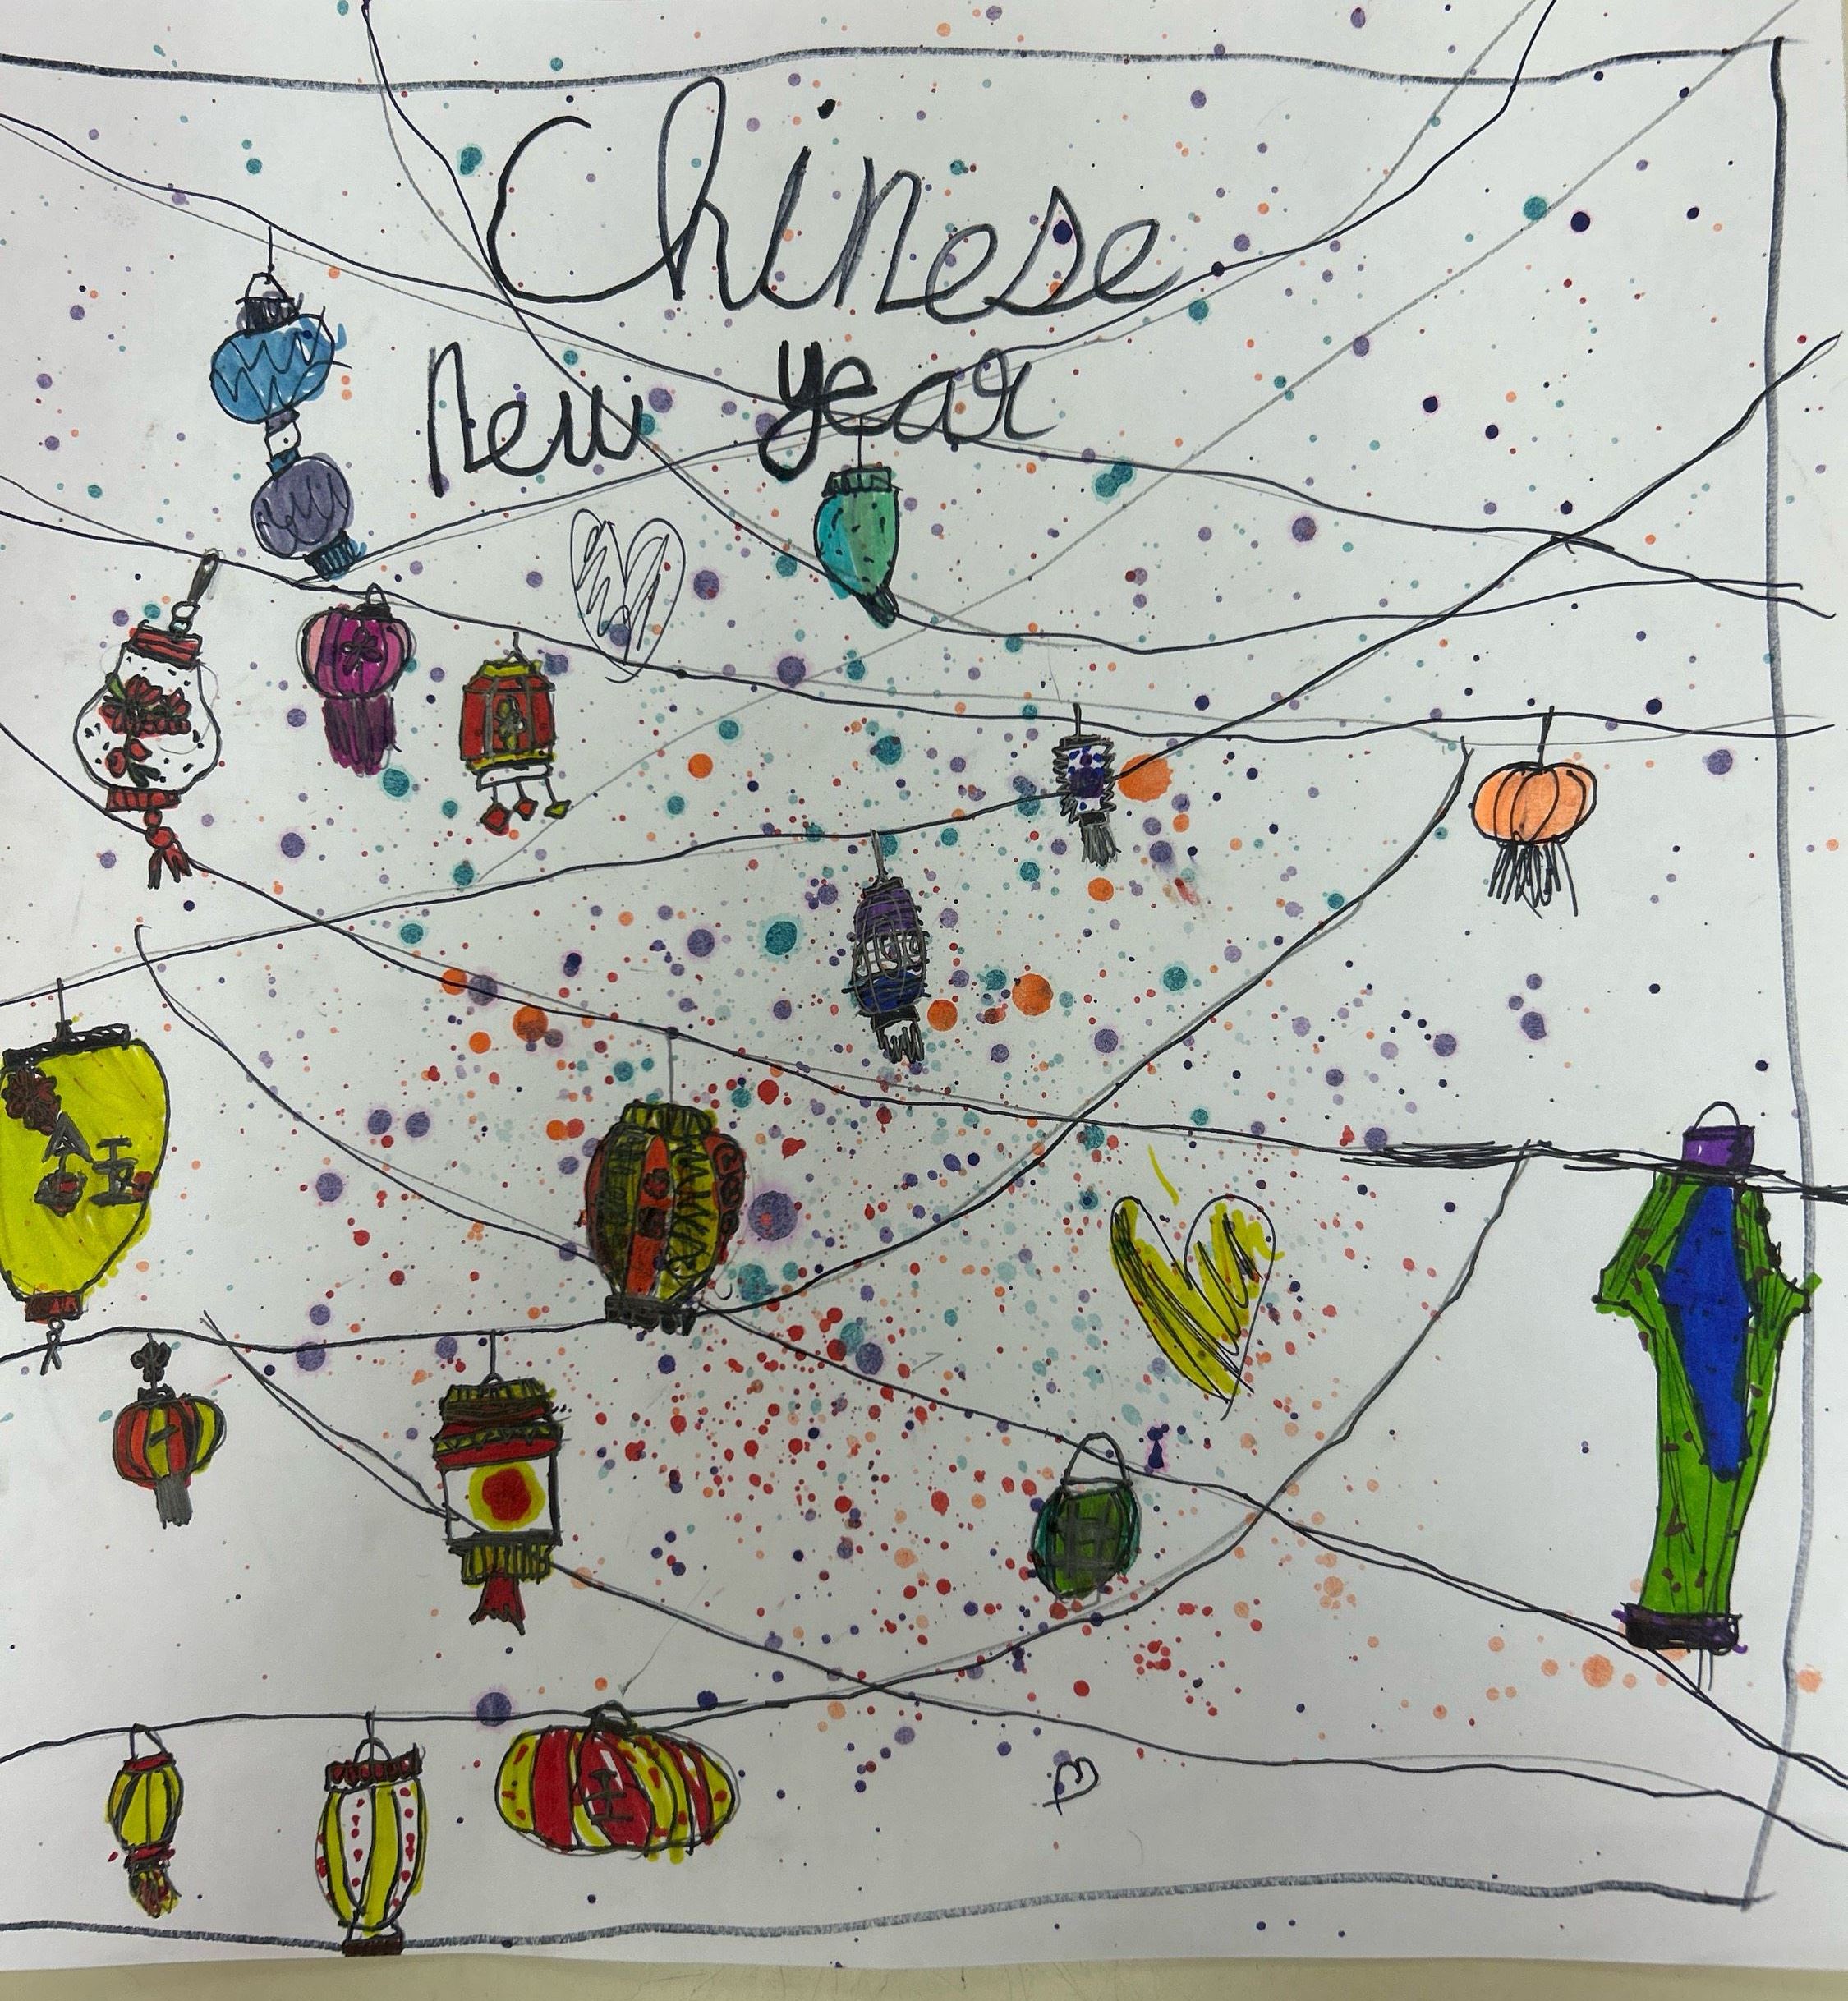 Chinese
new year